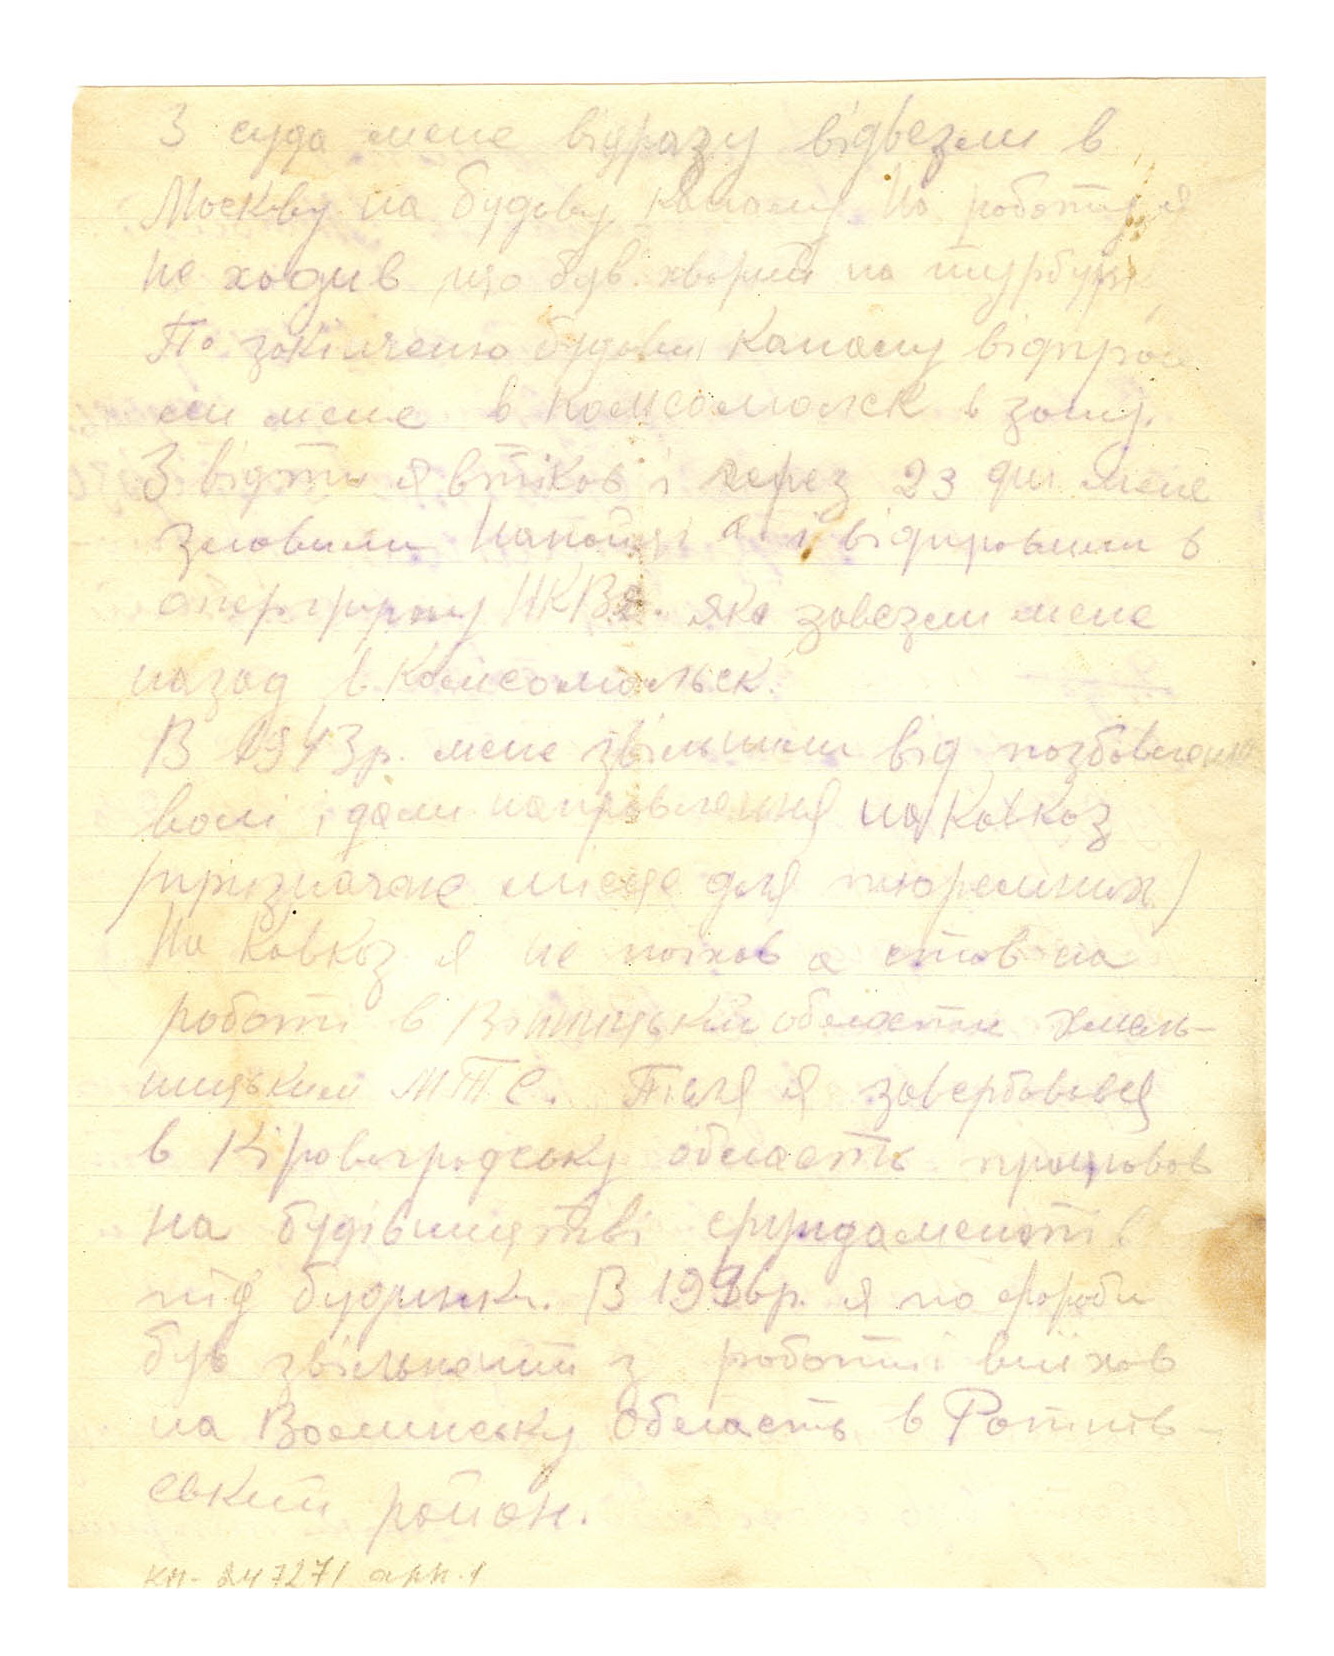 З суда мене відразу відвезли в
Москву на будову каналу. На роботу я
не ходив що був хворий на
По закінченю будови каналу відпра
ли мене в Комсомолск в зону.
З відти я втікав і через 23 дні мене
зловили і відправили в
опергрупу НКВД. яка завезли мене
назад в Комсомольск.
В 1943р. мене звільнили від позбавлення
волі і дали направлення на Кавказ
(призначене місце для тюремних)
На Кавказ я не поїхав а став на
роботи в Вінницькій области Хміль-
ницьким МТС. Піля я завербовався
в Кіровоградську область працював
на будівництві фундаментів
під будинки. В я по хоробі
був звільнений з роботи і виїхав
на Волинську область в Ратнів-
ський район.
КП-247271 арк.1